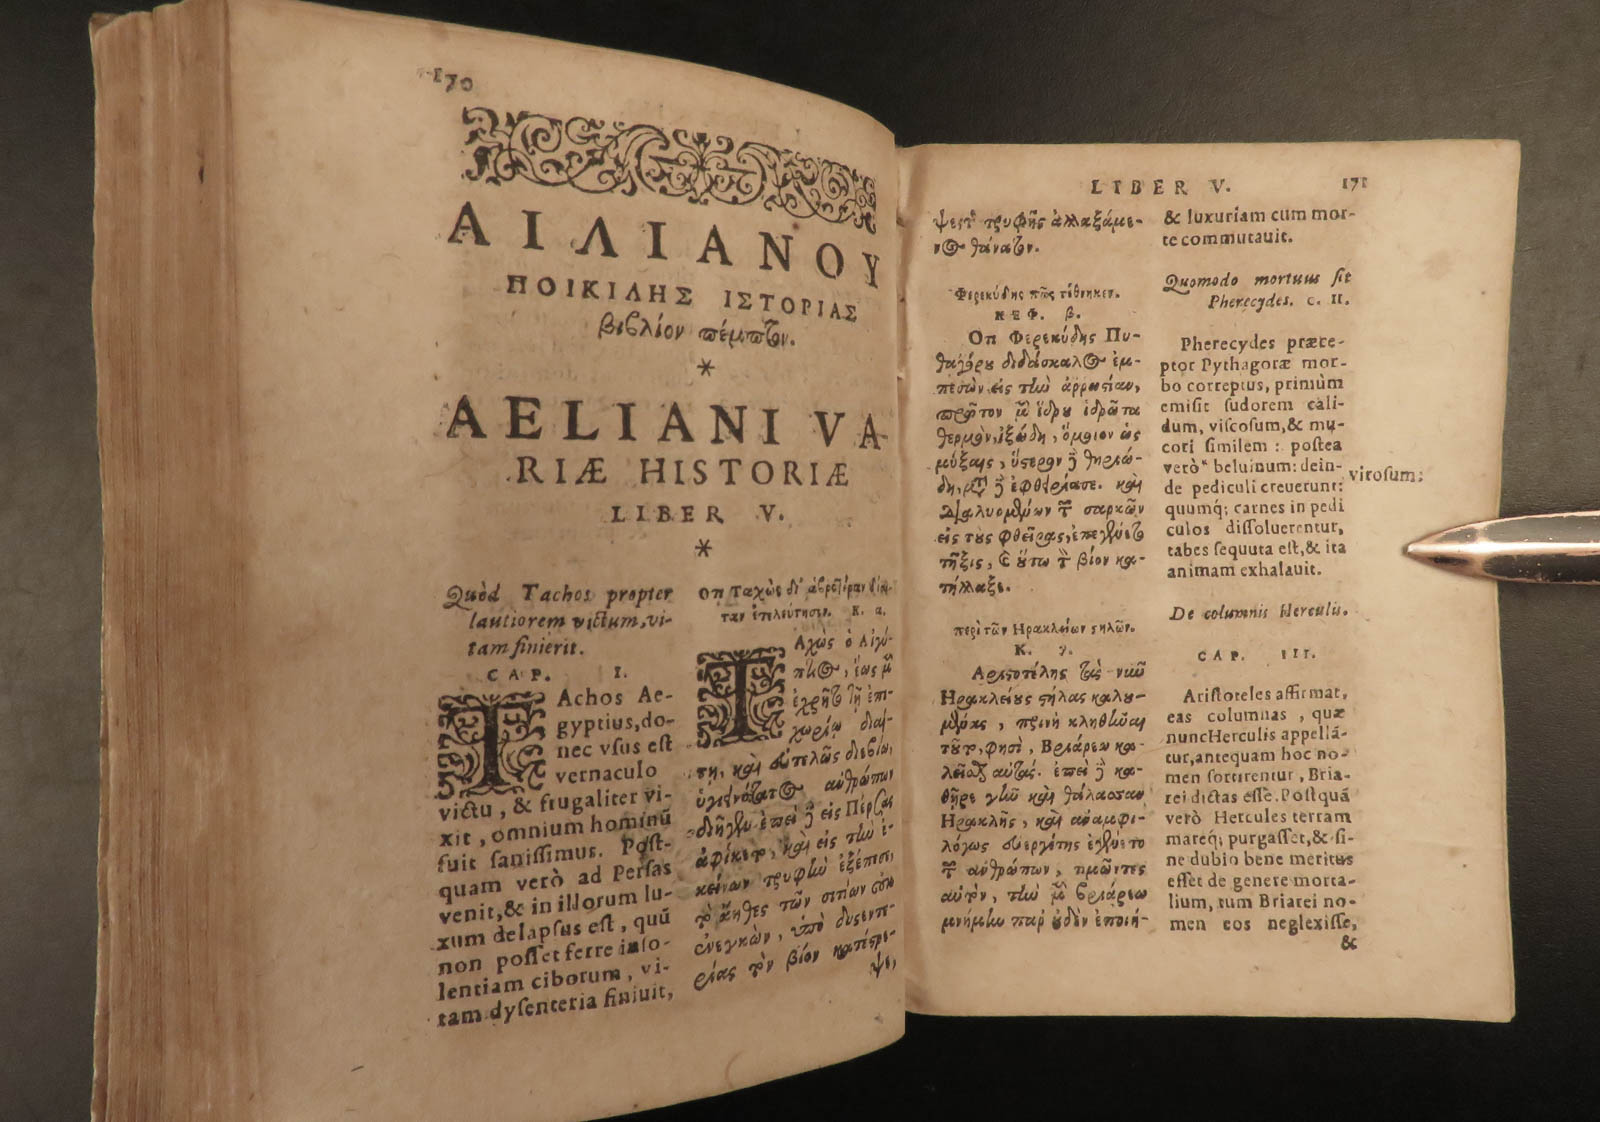 170
ΑΙΛΙΑΝΟΥ
ΠΟΙΚΙΛΗΣ ΙΣΤΟΡΙΑΣ
βιβλίον πέμπτον.
*
AELIANI VA
RIÆ HISTORIÆ
LIBER V.
*
Quòd Tachos propter
lautiorem victum, vi-
tam finierit.
CAP. I.
TAchos Ae-
gyptius, do-
nec vsus est
vernaculo
victu, & frugaliter vi-
xit, omnium hominū
fuit sanissimus. Post-
quam verò ad Persas
venit, & in illorum lu-
xum delapsus est, quū
non posset ferre inso-
lentiam ciborum, vi-
tam dysenteria finiuit,
Κ. α.
ΤΑχὼς ὁ Αἰγύ-
πτιος, ἕως μὲν
ἐχρῆτο τῇ ἐπι-
χωρίῳ διαί-
τῃ, καὶ εὐτελῶς διεβίω,
ὑγιεινότατος ἀνθρώπων
διῆγεν· ἐπεὶ δὲ εἰς Πέρσας
ἀφίκετο, καὶ εἰς τὴν ἐ-
κείνων τρυφὴν ἐξέπεσε,
τὸ ἄηθες τῶν σιτίων οὐκ
ἐνεγκὼν, ὑπὸ δυσεντε-
ρίας τὸν βίον κατέστρε-
ψε,
LIBER V. 171
ψεν τρυφῆς ἀλλαξάμε-
νος θάνατον.
Φερεκύδης πῶς τέθνηκεν.
ΚΕΦ. β.
Οτι Φερεκύδης Πυ-
θαγόρου διδάσκαλος ἐμ-
πεσὼν εἰς τὴν ἀρρωστίαν,
πρῶτον μὲν ἵδρου ἱδρῶτα
θερμὸν, ἰξώδη, ὅμοιον ὡς
μύξαις, ὕστερον δὲ θηριώ-
δη, μετὰ δὲ ἐφθειρίασε. καὶ
διαλυομένων τῶν σαρκῶν
εἰς τοὺς φθεῖρας, ἐπεγένετο
τῆξις, καὶ οὕτω τὸν βίον κα-
τήλλαξε.
περὶ τῶν Ηρακλείων στηλῶν.
Κ. γ.
Αριστοτέλης τὰς νῦν
Ηρακλείους στήλας καλου-
μένας, πρινὴ κληθῆναι
τοῦτο, φησὶ, Βριάρεω κα-
λεῖσθαι αὐτάς. ἐπεὶ δὲ κα-
θῆρε γῆν καὶ θάλασσαν
Ηρακλῆς, καὶ ἀναμφι-
λόγως εὐεργέτης ἐγένετο
τῶν ἀνθρώπων, τιμῶντες
αὐτὸν, τὴν μὲν Βριάρεω
μνήμην παρ᾽ οὐδὲν ἐποιή-
& luxuriam cum mor-
te commutauit.
Quomodo mortuus sit
Pherecydes. C. II.
Pherecydes præce-
ptor Pythagoræ mor-
bo correptus, primùm
emisit sudorem cali-
dum, viscosum, & mu-
cori similem: postea
verò beluinum: dein-
virosum:
de pediculi creuerunt:
quumq; carnes in pedi
culos dissoluerentur,
tabes sequuta est, & ita
animam exhalauit.
De columnis Herculis.
CAP. III.
Aristoteles affirmat,
eas columnas, quæ
nunc Herculis appellā-
tur, antequam hoc no-
men sortirentur, Bria-
rei dictas esse. Postquā
verò Hercules terram
mareq; purgasset, & si-
ne dubio bene meritus
esset de genere morta-
lium, tum Briarei no-
men eos neglexisse,
&